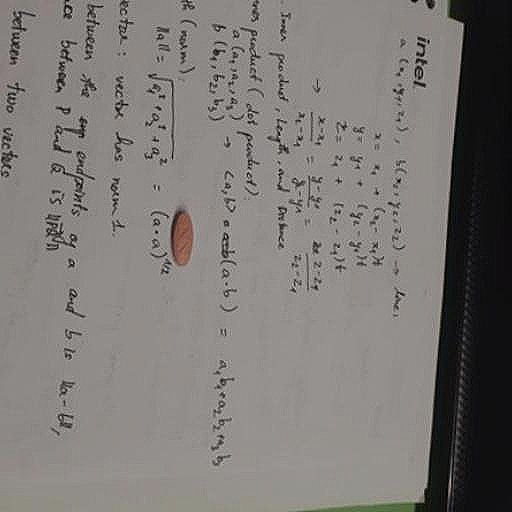 intel
a (x₁, y₁, z₁), b(x₂, y₂, z₂) → line,
x = x₁ + (x₂ - x₁)t
y = y₁ + (y₂ - y₁)t
z = z₁ + (z₂ - z₁)t
→ x-x₁/x₂-x₁ = y-y₁/y-y₁ = z-z₁/z₂-z₁
Inner product, Length, and Distance
product (dot product):
a(a₁, a₂, a₃)
b(b₁, b₂, b₃) → <a,b> = (a·b) = a₁b₁+a₂b₂+a₃b₃
(norm):
||a|| = √a₁²+a₂²+a₃² = (a·a)^1/2
vector: vector has norm 1.
between the endpoints of a and b is ||a-b||,
between P and Q is ||PQ||
between two vectors